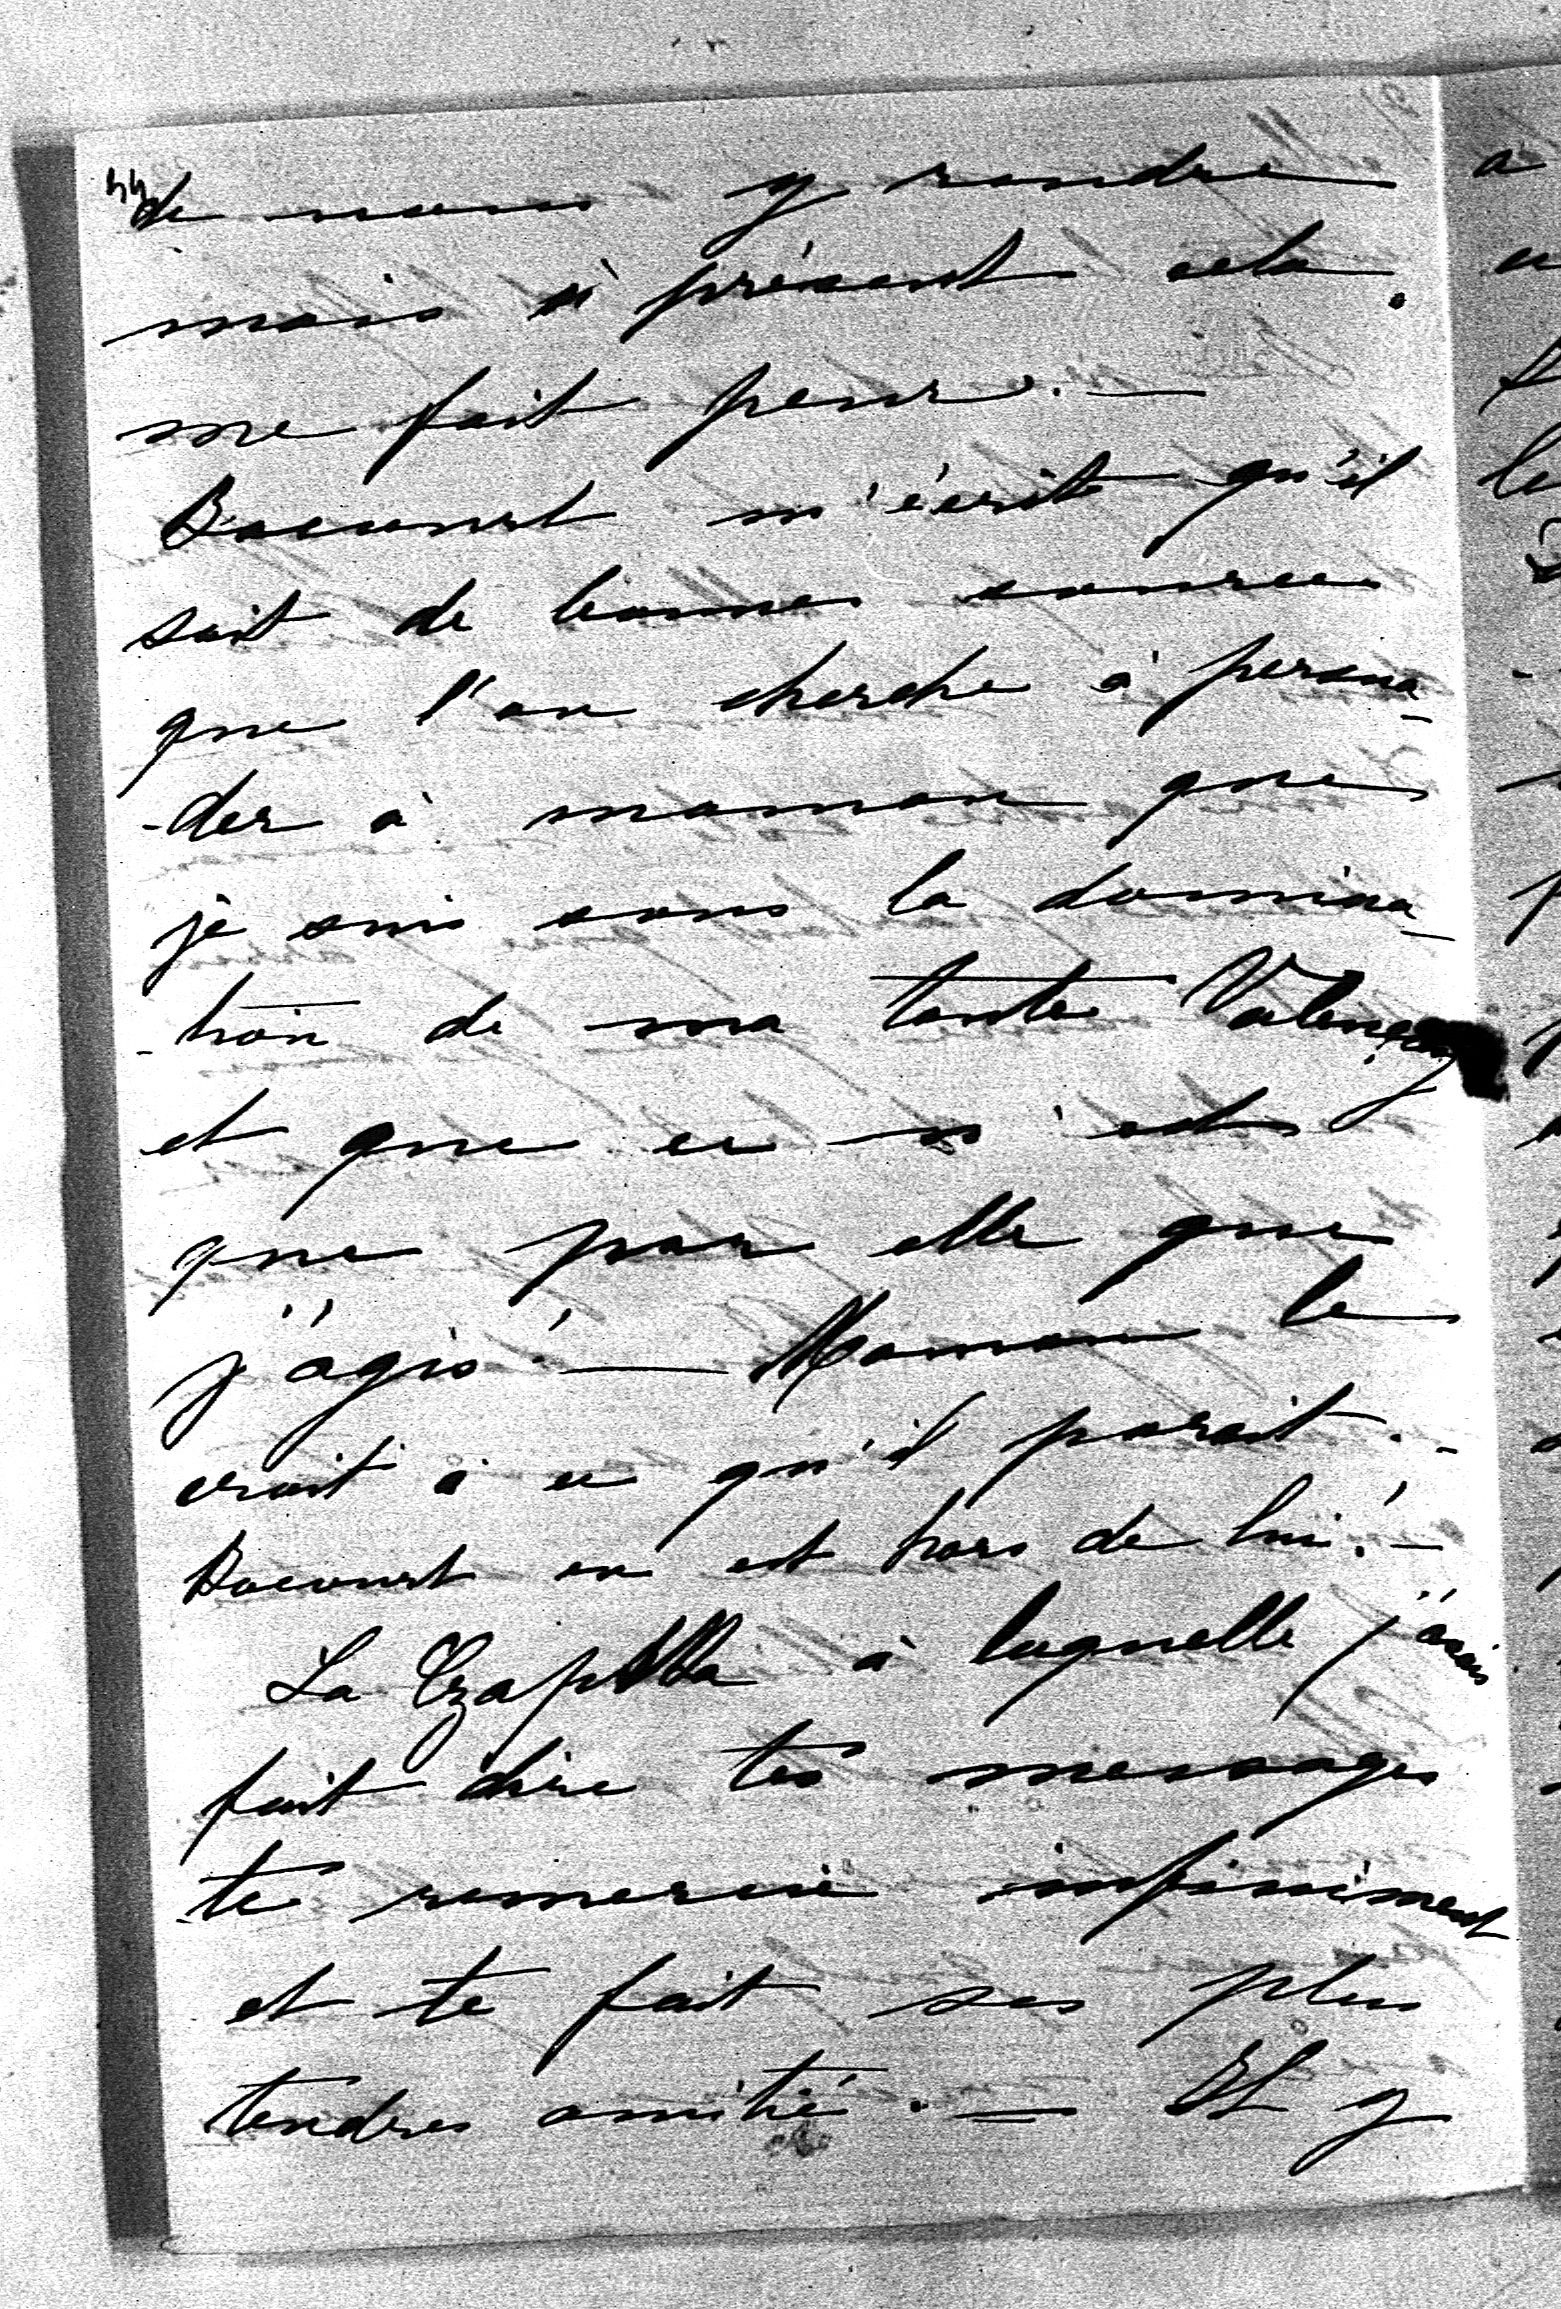 44
de nous y rendre
mais à présent cela
me fait peur. —
Bacourt m'écrit qu'il
sait de bonnes sources
que l'on cherche à persua-
-der à maman que
je suis sous la domina-
-tion de ma tante Valençay
et que ce n'est
que par elle que
j'agis. — Maman le
croit à ce qu'il parait. -
Bacourt en est hors de lui! —
La Czapska à laquelle j'avais
fait dire tes messages
te remercie infiniment
et te fait ses plus
tendres amitié. — Il y